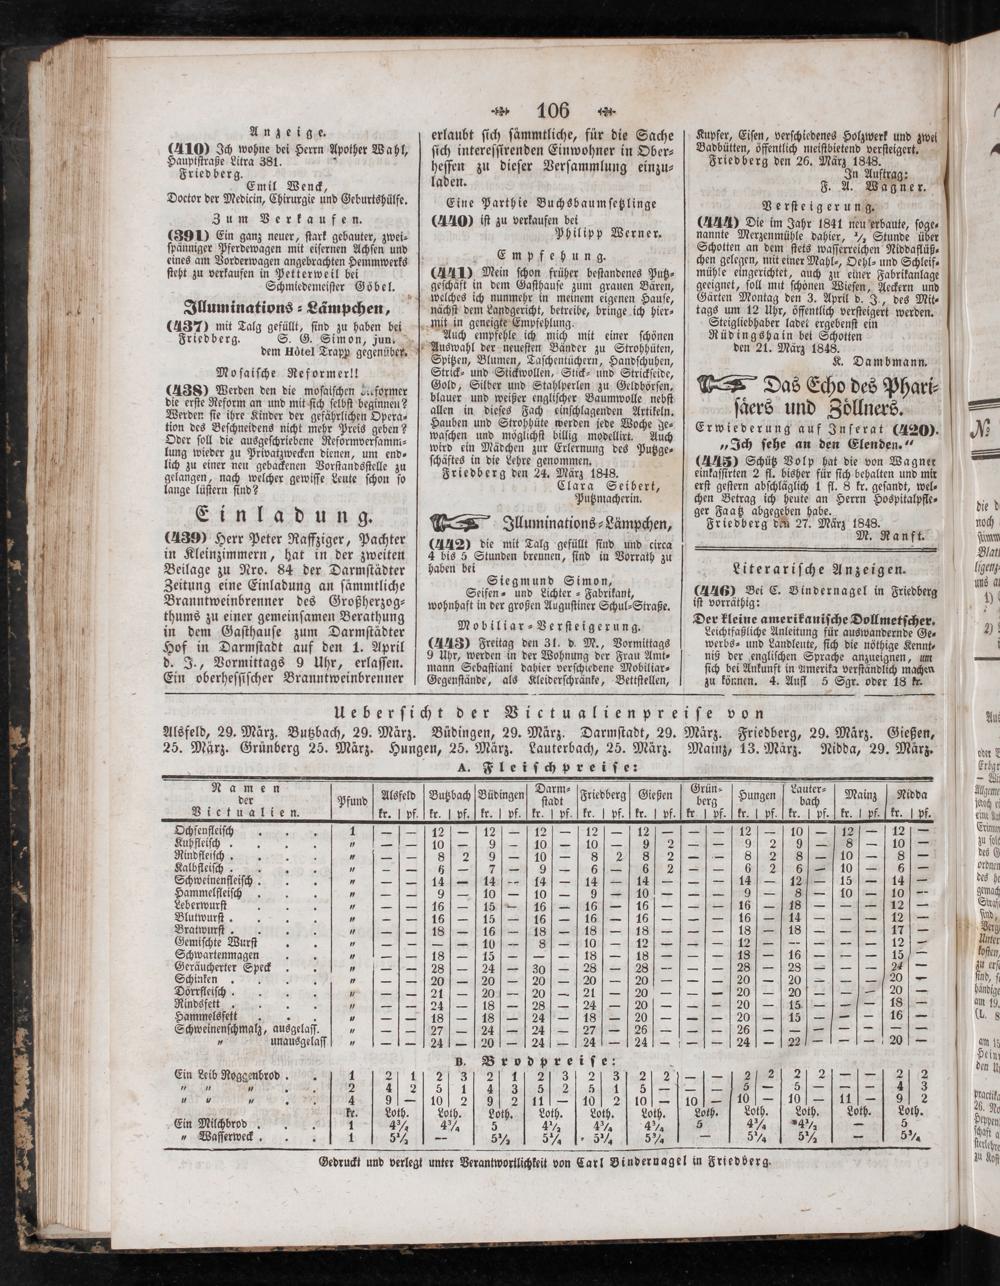 106
Anzeige.
(410) Ich wohne bei Herrn Apother Wahl,
Hauptstraße Litra 381.
Friedberg.
Emil Wenck,
Doctor der Medicin, Chirurgie und Geburtshülfe.
Zum Verkaufen.
(391) Ein ganz neuer, stark gebauter, zwei-
spänniger Pferdewagen mit eisernen Achsen und
eines am Vorderwagen angebrachten Hemmwerks
steht zu verkaufen in Petterweil bei
Schmiedemeister Göbel.
Illuminations-Lämpchen,
(437) mit Talg gefüllt, sind zu haben bei
Friedberg. S. G. Simon, jun.
dem Hôtel Trapp gegenüber.
Mosaische Reformer!!
(438) Werden den die mosaischen Reformer
die erste Reform an und mit sich selbst beginnen?
Werden sie ihre Kinder der gefährlichen Opera-
tion des Beschneidens nicht mehr Preis geben?
Oder soll die ausgeschriebene Reformversamm-
lung wieder zu Privatzwecken dienen, um end-
lich zu einer neu gebackenen Vorstandsstelle zu
gelangen, nach welcher gewisse Leute schon so
lange lüstern sind?
Einladung.
(439) Herr Peter Raffziger, Pachter
in Kleinzimmern, hat in der zweiten
Beilage zu Nro. 84 der Darmstädter
Zeitung eine Einladung an sämmtliche
Branntweinbrenner des Großherzog-
thums zu einer gemeinsamen Berathung
in dem Gasthause zum Darmstädter
Hof in Darmstadt auf den 1. April
d. J., Vormittags 9 Uhr, erlassen.
Ein oberhessischer Branntweinbrenner
erlaubt sich sämmtliche, für die Sache
sich interessirenden Einwohner in Ober-
hessen zu dieser Versammlung einzu-
laden.
Eine Parthie Buchsbaumsetzlinge
(440) ist zu verkaufen bei
Philipp Werner.
Empfehung.
(441) Mein schon früher bestandenes Putz-
geschäft in dem Gasthause zum grauen Bären,
welches ich nunmehr in meinem eigenen Hause,
nächst dem Landgericht, betreibe, bringe ich hier-
mit in geneigte Empfehlung.
Auch empfehle ich mich mit einer schönen
Auswahl der neuesten Bänder zu Strohhüten,
Spitzen, Blumen, Taschentüchern, Handschuhen,
Strick- und Stickwollen, Stick- und Strickseide,
Gold, Silber und Stahlperlen zu Geldbörsen,
blauer und weißer englischer Baumwolle nebst
allen in dieses Fach einschlagenden Artikeln.
Hauben und Strohhüte werden jede Woche ge-
waschen und möglichst billig modellirt. Auch
wird ein Mädchen zur Erlernung des Putzge-
schäftes in die Lehre genommen.
Friedberg den 24. März 1848.
Clara Seibert,
Putzmacherin.
Illuminations-Lämpchen,
(442) die mit Talg gefüllt sind und circa
4 bis 5 Stunden brennen, sind in Vorrath zu
haben bei
Siegmund Simon,
Seifen- und Lichter-Fabrikant,
wohnhaft in der großen Augustiner Schul-Straße.
Mobiliar-Versteigerung.
(443) Freitag den 31. d. M., Vormittags
9 Uhr, werden in der Wohnung der Frau Amt-
mann Sebastiani dahier verschiedene Mobiliar-
Gegenstände, als Kleiderschränke, Bettstellen,
Kupfer, Eisen, verschiedenes Holzwerk und zwei
Badbütten, öffentlich meistbietend versteigert.
Friedberg den 26. März 1848.
In Auftrag:
F. A. Wagner.
Versteigerung.
(444) Die im Jahr 1841 neu erbaute, soge-
nannte Merzenmühle dahier, ½ Stunde über
Schotten an dem stets wasserreichen Niddaflüß-
chen gelegen, mit einer Mahl-, Oehl- und Schleif-
mühle eingerichtet, auch zu einer Fabrikanlage
geeignet, soll mit schönen Wiesen, Aeckern und
Gärten Montag den 3. April d. J., des Mit-
tags um 12 Uhr, öffentlich versteigert werden.
Steigliebhaber ladet ergebenst ein
Rüdingshain bei Schotten
den 21. März 1848.
K. Dambmann.
Das Echo des Phari-
säers und Zöllners.
Erwiederung auf Inserat (420).
„Ich sehe an den Elenden.“
(445) Schütz Volp hat die von Wagner
einkassirten 2 fl. bisher für sich behalten und mir
erst gestern abschläglich 1 fl. 8 kr. gesandt, wel-
chen Betrag ich heute an Herrn Hospitalpfle-
ger Faatz abgegeben habe.
Friedberg den 27. März 1848.
M. Ranft.
Literarische Anzeigen.
(446) Bei C. Bindernagel in Friedberg
ist vorräthig:
Der kleine amerikanische Dollmetscher.
Leichtfaßliche Anleitung für auswandernde Ge-
werbs- und Landleute, sich die nöthige Kennt-
niß der englischen Sprache anzueignen, um
sich bei Ankunft in Amerika verständlich machen
zu können. 4. Aufl 5 Sgr. oder 18 kr.
Uebersicht der Victualienpreise von
Alsfeld, 29. März. Butzbach, 29. März. Büdingen, 29. März. Darmstadt, 29. März. Friedberg, 29. März. Gießen,
25. März. Grünberg 25. März. Hungen, 25. März. Lauterbach, 25. März. Mainz, 13. März. Nidda, 29. März.
A. Fleischpreise:
Namen der Victualien. | Pfund | Alsfeld | Butzbach | Büdingen | Darm-stadt | Friedberg | Gießen | Grün-berg | Hungen | Lauter-bach | Mainz | Nidda
kr. | pf. kr. | pf. kr. | pf. kr. | pf. kr. | pf. kr. | pf. kr. | pf. kr. | pf. kr. | pf. kr. | pf. kr. | pf.
Ochsenfleisch . . . 1 — — 12 — 12 — 12 — 12 — 12 — — — 12 — 10 — 12 — 12 —
Kuhfleisch . . . " — — 10 — 9 — 10 — 10 — 9 2 — — 9 2 9 — 8 — 10 —
Rindfleisch . . . " — — 8 2 9 — 10 — 8 2 8 2 — — 8 2 8 — 10 — 8 —
Kalbfleisch . . . " — — 6 — 7 — 9 — 6 — 6 2 — — 6 2 6 — 10 — 6 —
Schweinenfleisch . . " — — 14 — 14 — 14 — 14 — 14 — — — 14 — 12 — 15 — 14 —
Hammelfleisch . . " — — 9 — 10 — 10 — 9 — 10 — — — 9 — 8 — 10 — 10 —
Leberwurst . . " — — 16 — 15 — 16 — 16 — 16 — — — 16 — 18 — — — 12 —
Blutwurst . . . " — — 16 — 15 — 16 — 16 — 16 — — — 16 — 14 — — — 12 —
Bratwurst . . . " — — 18 — 16 — 18 — 18 — 18 — — — 18 — 18 — — — 17 —
Gemischte Wurst . . " — — — — 10 — 8 — 10 — 12 — — — 12 — — — — — 12 —
Schwartenmagen . . " — — 18 — 15 — — — 18 — 18 — — — 18 — 16 — — — 15 —
Geräucherter Speck . " — — 28 — 24 — 30 — 28 — 28 — — — 28 — 28 — — — 24 —
Schinken . . . " — — 20 — 20 — 20 — 20 — 20 — — — 20 — 20 — — — 20 —
Dörrfleisch . . . " — — 21 — 20 — 20 — 21 — 20 — — — 20 — 20 — — — 20 —
Rindsfett . . . " — — 24 — 18 — 28 — 24 — 20 — — — 20 — 15 — — — 18 —
Hammelsfett . . " — — 18 — 18 — 24 — 18 — 20 — — — 20 — 15 — — — 16 —
Schweinenschmalz, ausgelass. " — — 27 — 24 — 24 — 27 — 26 — — — 26 — — — — — — —
" unausgelass " — — 24 — 20 — 24 — 24 — 24 — — — 24 — 22 — — — 20 —
B. Brodpreise:
Ein Leib Roggenbrod . . 1 2 1 2 3 2 1 2 3 2 3 2 2 — — 2 2 2 2 — — 2 2
" " " . 2 4 2 5 1 4 3 5 2 5 1 5 — — — 5 — 5 — — — 4 3
" " " . 4 9 — 10 2 9 2 11 — 10 2 10 — 10 — 10 — 10 — 11 — 9 2
kr. Loth. Loth. Loth. Loth. Loth. Loth. Loth. Loth. Loth. Loth. Loth.
Ein Milchbrod . . . 1 4¾ 4¾ 5 4½ 4¾ 4¾ 5 4¾ 4½ — 5
" Wasserweck . . . 1 5½ — 5½ 5¼ 5¼ 5¾ — 5¼ 5½ — 5¾
Gedruckt und verlegt unter Verantwortlichkeit von Carl Bindernagel in Friedberg.